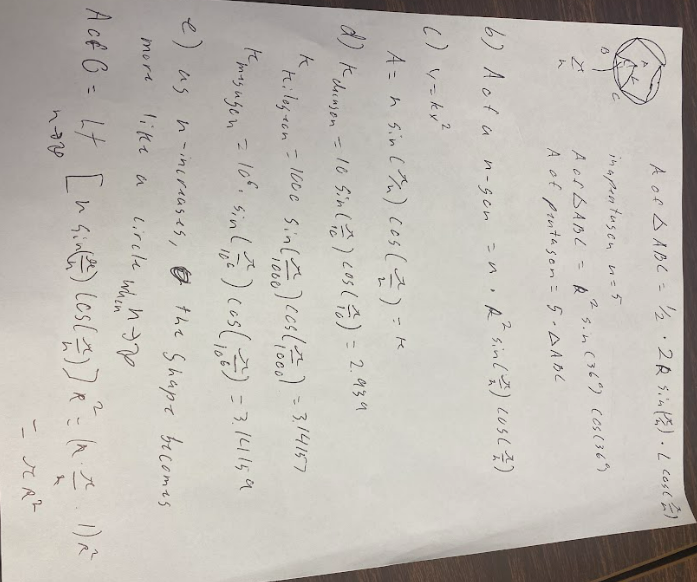 A of △ABC = 1/2 · 2R sin(π/n) · L cos(π/n)
A
B
C
π/n
in a pentagon n=5
A of △ABC = R² sin(36°) cos(36°)
A of pentagon = 5 · △ABC
b) A of a n-gon = n · R² sin(π/n) cos(π/n)
c) y = kx²
A = n sin(π/n) cos(π/n) = k
d) K decagon = 10 sin(π/10) cos(π/10) = 2.939
K kilogon = 1000 sin(π/1000) cos(π/1000) = 3.14157
K megagon = 10⁶ · sin(π/10⁶) cos(π/10⁶) = 3.14159
e) as n-increases, the shape becomes
more like a circle when n→∞
A of G = Lt n→∞ [n sin(π/n) cos(π/n)] R² = (n · π/n · 1) R²
= πR²